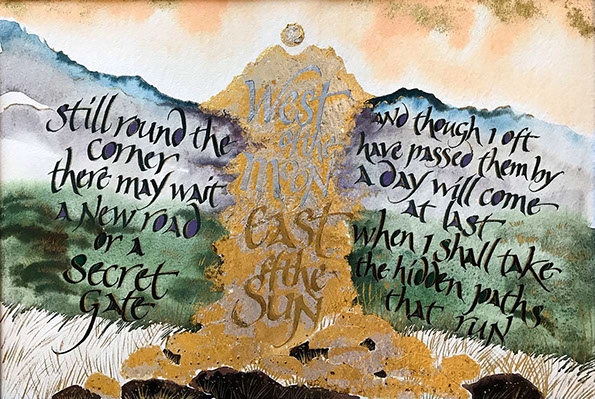 still round the
corner
there may wait
a New road
or a
secret
Gate
and though I oft
have passed them by
a day will come
at last
when I shall take
the hidden paths
that run
West
of the
MOON
EAST
of the
SUN